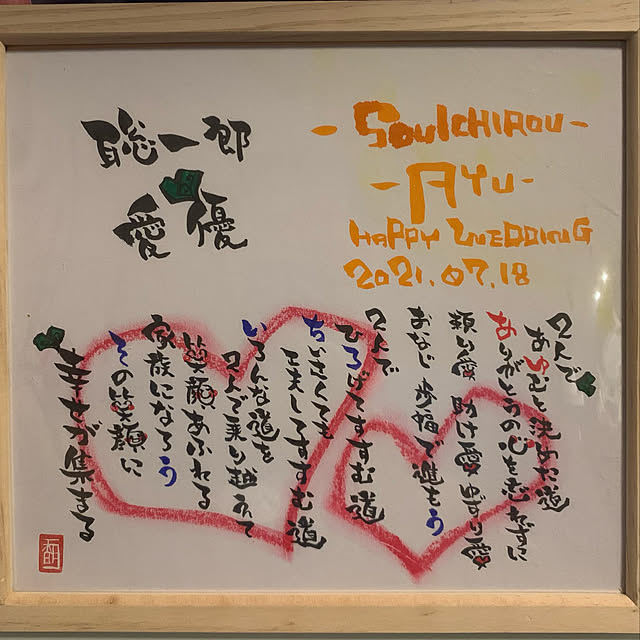 聡一郎
愛優
- SOUICHIROU -
- AYU -
HAPPY WEDDING
2021.07.18
2人で
あゆむと決めた道
ありがとうの心を忘れずに
頼り愛 助け愛 ゆずり愛
おなじ歩幅で進もう
2人で
ひろげてすすむ道
ちいさくても
工夫してすすむ道
いろんな道を
2人で乗り越えて
笑顔あふれる
家族になろう
その笑顔に
幸せが集まる